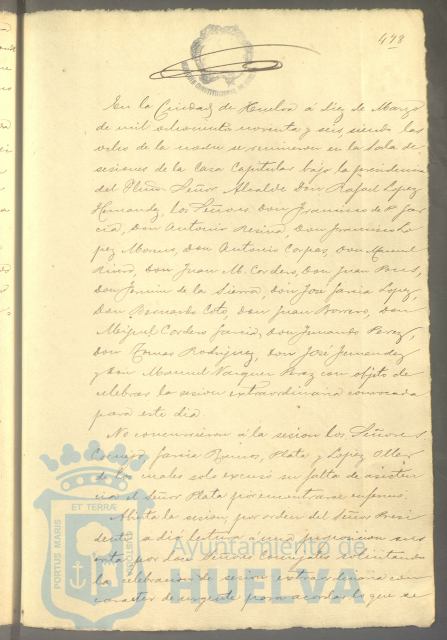 478
En la Ciudad de Huelva á diez de Marzo
de mil ochocientos noventa y seis, siendo las
ocho de la noche se reunieron en la Sala de
sesiones de la Casa Capitular bajo la presidencia
del Yltmo Señor Alcalde Don Rafael Lopez
Hernandez, los Señores Don Francisco de P. Gar
cia, Don Antonio Resina, Don Francisco Lo
pez Moreno, Don Antonio Corpas, Don Manuel
Rivero, Don Juan M. Cordero, Don Juan
Don de la Sierra, Don José Garcia Lopez,
Don Bernardo Coto, Don Juan Borrero, Don
Miguel Cordero Garcia, Don Fernando Perez,
Don Tomas Rodriguez, Don José Fernandez
y Don Manuel Vazquez Perez con objeto de
celebrar la sesion extraordinaria convocada
para este dia.
No concurrieron á la sesion los Señores
Garcia Ramos, Plata y Lopez
de los cuales solo escusó su falta de asisten
cia el Señor Plata por encontrarse enfermo.
Abierta la sesion, por orden del Señor Presi
dente se dió lectura á una proposicion sus
crita por Señores Concejales solicitando
la celebracion de sesion extraordinaria con
caracter de urgente para acordar lo que se
PORTUS MARIS
ET TERRÆ
CUSTODIA
Ayuntamiento de
HUELVA